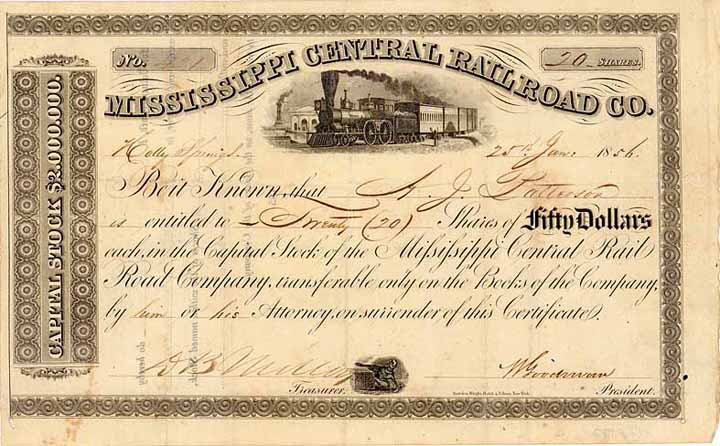 No. 1
20 SHARES.
MISSISSIPPI CENTRAL RAIL ROAD CO.
CAPITAL STOCK $2,000,000.
Holly Springs. 25th Jan: 1856.
Be it Known, that A. J. Patterson
is entitled to Twenty (20) Shares of Fifty Dollars
each, in the Capital Stock of the Mississippi Central Rail
Road Company, transferable only on the Books of the Company,
by him or his Attorney, on surrender of this Certificate.
W Goodman
Treasurer. President.